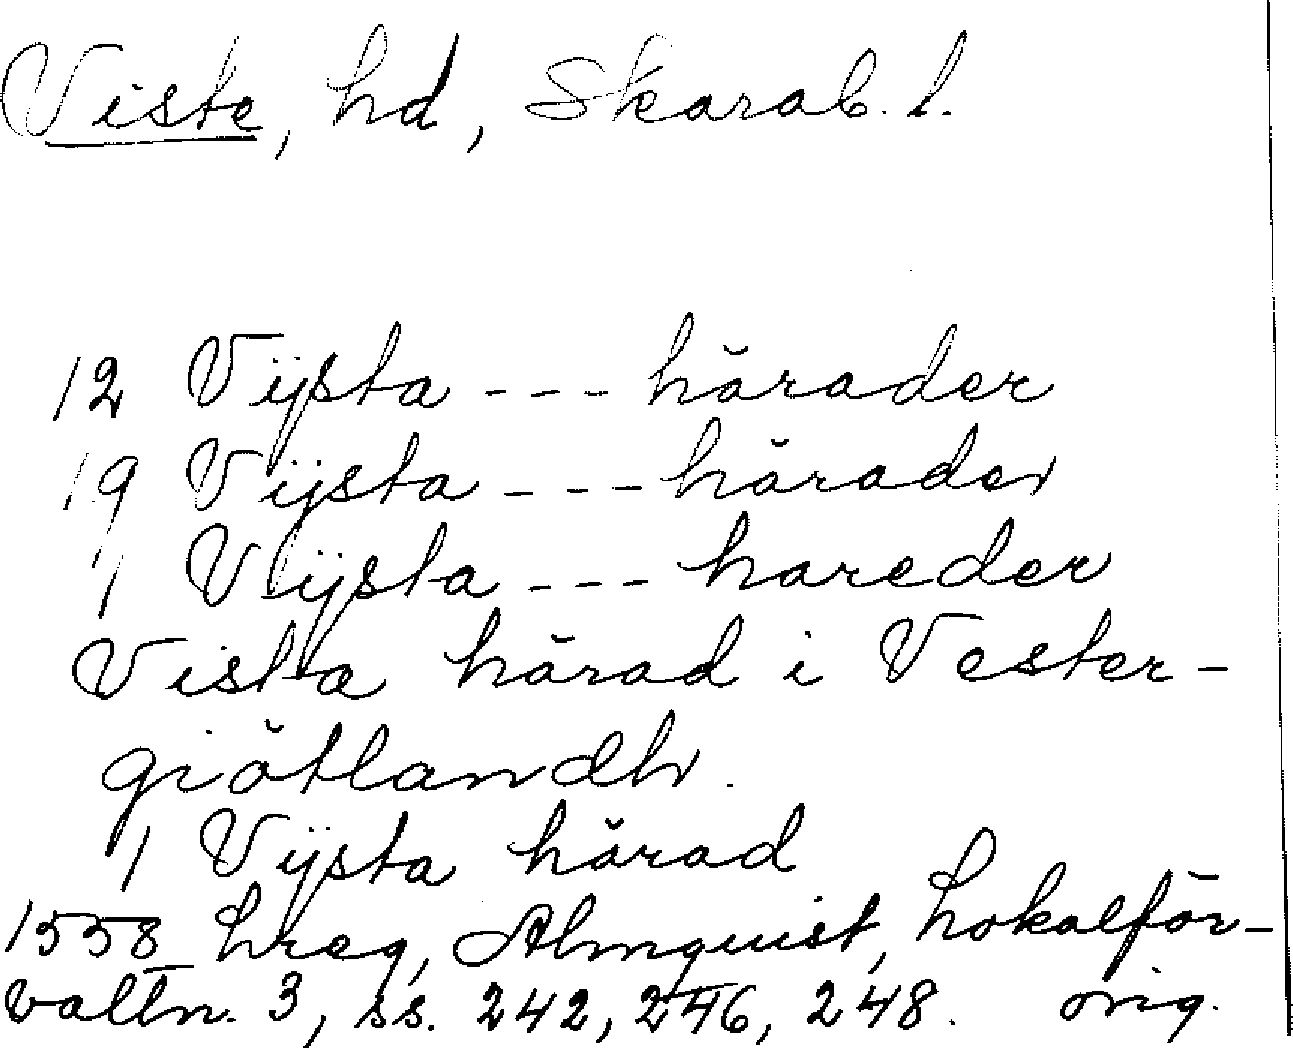 Viste, hd, Skarab. l.
12 Vijsta --- hărader
19 Vijsta --- hărader
1 Vijsta --- hareder
Vista hărad i Vester-
giŏtlandh.
1 Vijsta hărad
1558 Lreg, Almquist, Lokalför-
valtn. 3, ss. 242, 246, 248. orig.